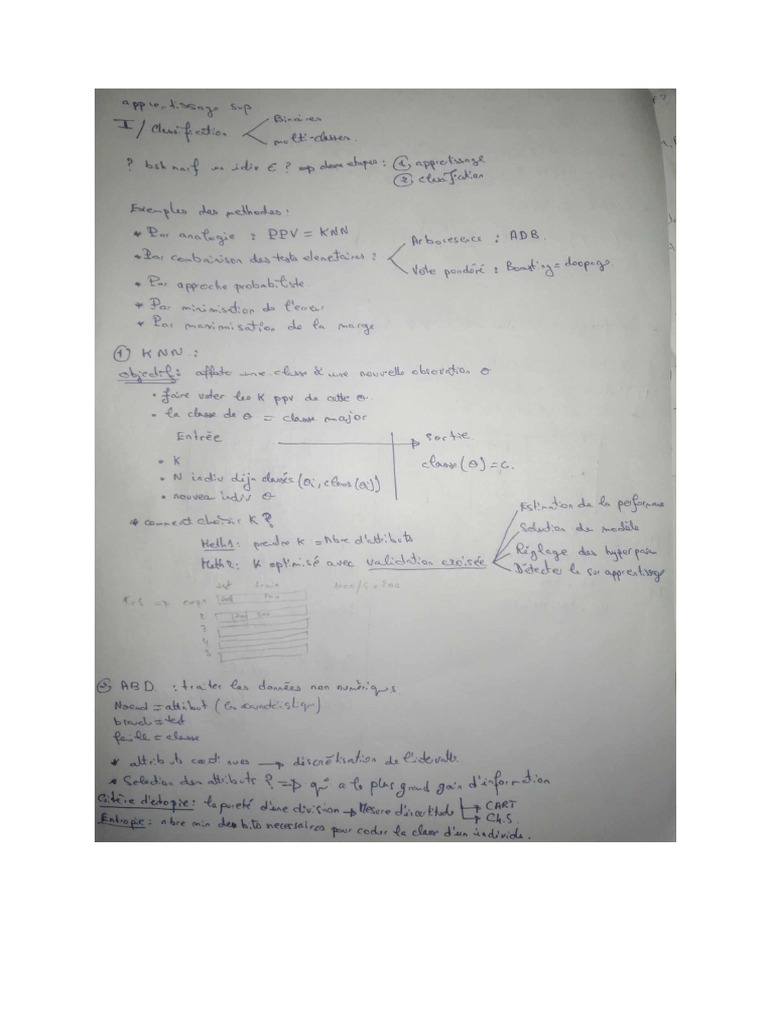 apprentissage sup
I/ Classification
Binaires
multi-classes
? bsh naf un indiv ∈ ? => deux etapes : ① apprentissage
② classification
Exemples des methodes :
* Par analogie : PPV = KNN
* Par combinaison des tests elementaires :
Arboresence : ADB.
Vote pondéré : Boosting = doopage
* Par approche probabiliste
* Par minimisation de l'erreur
* Par maximisation de la marge
① KNN :
objectif : affate une classe à une nouvelle observation θ
• faire voter les K ppv de cette θ.
• la classe de θ = classe major
Entrée → sortie
• K
classe(θ) = c.
• N indiv déjà classés (θi, class(θi))
• nouveau indiv θ
* comment choisir K ?
Meth1 : prendre K = Nbre d'attributs
Meth2 : K optimisé avec validation croisée
Estimation de la performance
Selection de modèle
Réglage des hyperpam
Détecter le sur apprentissage
K=5 => exp1
2
3
4
5
② ABD. : traiter les données non numériques.
Noeud = attribut (la caractéristique)
branch = test
feuille = classe
* attributs continues → discrétisation de l'intervalle
* Selection des attributs ? => qui a le plus grand gain d'information
Critère d'ectropie : la pureté d'une division → Mesure d'incertitude
CART
C4.5
Entropie : nbre min des bits necessaires pour coder la classe d'un individu.